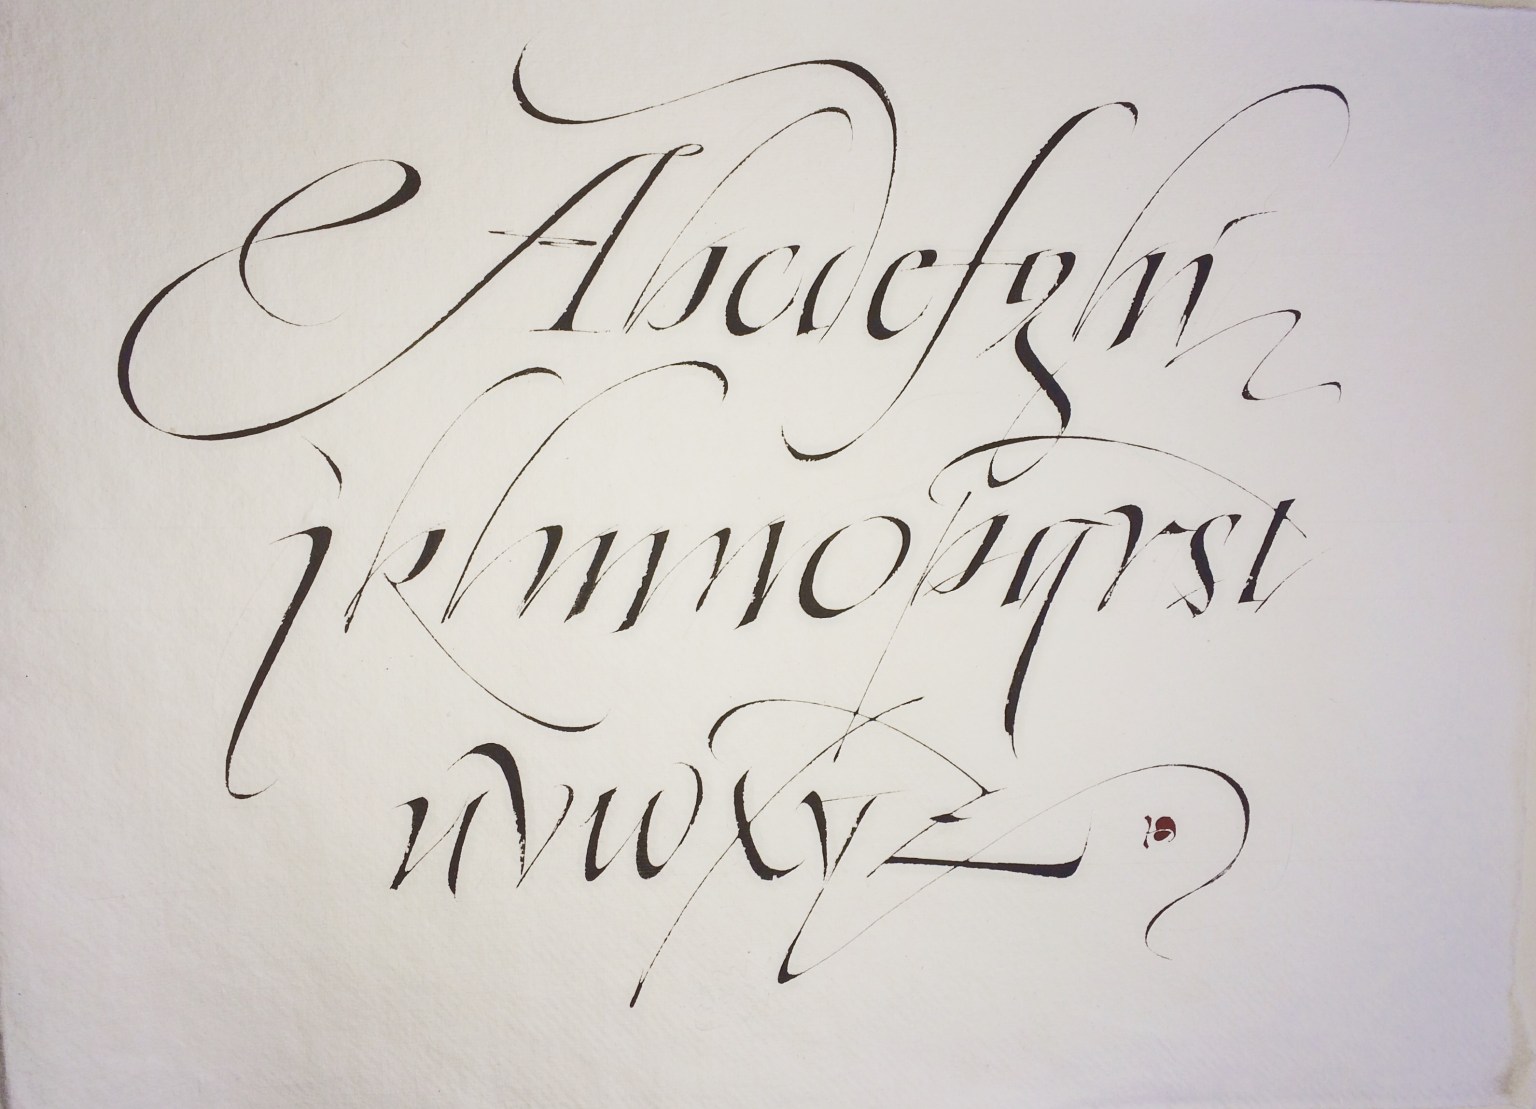 Abcdefghi
jklmnopqrst
uvwxyz